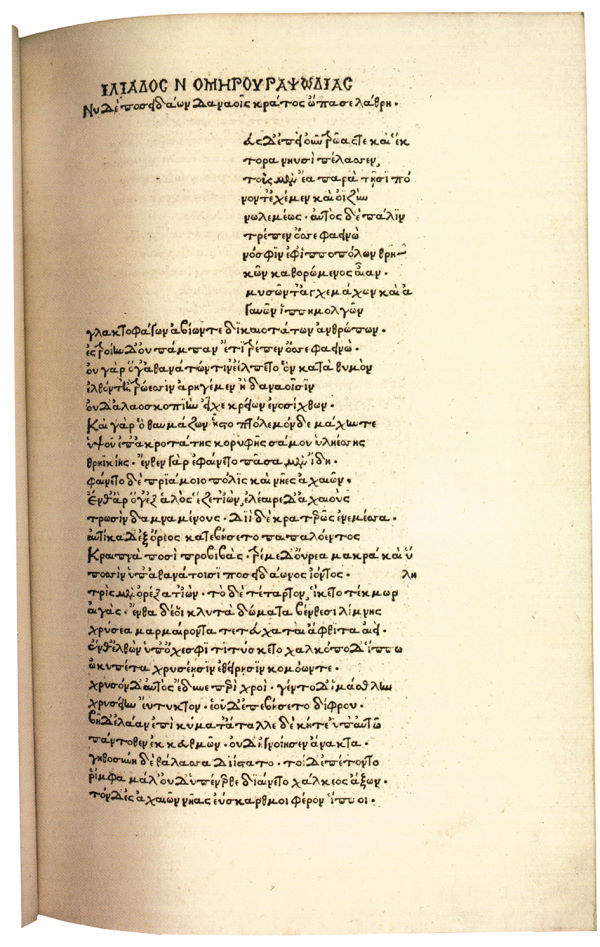 ΙΛΙΑΔΟΣ Ν ΟΜΗΡΟΥ ΡΑΨΩΔΙΑΣ
Νυ δὲ ποσειδάων δαναοῖς κράτος ὤπασε λάβρη.
εὺς δ' ἐπεὶ οὖν τρῶας τε καὶ ἕκ
τορα νηυσὶ πέλασσεν,
τοὺς μὲν ἔα παρὰ τῇσι πό
νον τ' ἐχέμεν καὶ ὀϊζὺν
νωλεμέως. αὐτὸς δὲ πάλιν
τρέπεν ὄσσε φαεινὼ
νόσφιν ἐφ' ἱπποπόλων θρη
κῶν καθορώμενος αἶαν.
μυσῶν τ' ἀγχεμάχων καὶ ἀ
γαυῶν ἱππημολγῶν
γλακτοφάγων ἀβίων τε δικαιοτάτων ἀνθρώπων.
ἐς τροίην δ' οὐ πάμπαν ἔτι τρέπεν ὄσσε φαεινώ.
οὐ γὰρ ὅγ' ἀθανάτων τιν' ἐέλπετο ὃν κατὰ θυμὸν
ἐλθόντ' ἢ τρώεσσιν ἀρηγέμεν ἢ δαναοῖσιν
οὐδ' ἀλαοσκοπιὴν εἶχε κρείων ἐνοσίχθων.
Καὶ γὰρ ὁ θαυμάζων ἧστο πτόλεμόν τε μάχην τε
ὑψοῦ ἐπ' ἀκροτάτης κορυφῆς σάμου ὑληέσσης
θρηϊκίης. ἔνθεν γὰρ ἐφαίνετο πᾶσα μὲν ἴδη.
φαίνετο δὲ πριάμοιο πόλις καὶ νῆες ἀχαιῶν.
Ἔνθ' ἄρ' ὅγ' ἐξ ἁλὸς ἕζετ' ἰών, ἐλέαιρε δ' ἀχαιοὺς
τρωσὶν δαμναμένους. διῒ δὲ κρατερῶς ἐνεμέσσα.
αὐτίκα δ' ἐξ ὄρεος κατεβήσετο παιπαλόεντος
Κραιπνὰ ποσὶ προβιβάς. τρέμε δ' οὔρεα μακρὰ καὶ ὕ
ποσσὶν ὑπ' ἀθανάτοισι ποσειδάωνος ἰόντος. λη
τρὶς μὲν ὀρέξατ' ἰών. τὸ δὲ τέταρτον, ἵκετο τέκμωρ
αἰγάς. ἔνθα δέ οἱ κλυτὰ δώματα βένθεσι λίμνης
χρύσεα μαρμαίροντα τετεύχαται ἄφθιτα αἰεί.
ἔνθ' ἐλθὼν ὑπ' ὄχεσφι τιτύσκετο χαλκόποδ' ἵππω
ὠκυπέτα χρυσέῃσιν ἐθείρῃσιν κομόωντε.
χρυσὸν δ' αὐτὸς ἔδυνε περὶ χροΐ. γέντο δ' ἱμάσθλην
χρυσείην εὔτυκτον. ἑοῦ δ' ἐπεβήσετο δίφρου.
βῆ δ' ἐλάαν ἐπὶ κύματ' ἄταλλε δὲ κήτε' ὑπ' αὐτῷ
πάντοθεν ἐκ κευθμῶν. οὐδ' ἠγνοίησεν ἄνακτα.
γηθοσύνῃ δὲ θάλασσα διΐστατο. τοὶ δ' ἐπέτοντο
ῥίμφα μάλ' οὐδ' ὑπένερθε διαίνετο χάλκεος ἄξων.
τὸν δ' ἐς ἀχαιῶν νῆας ἐΰσκαρθμοι φέρον ἵπποι.